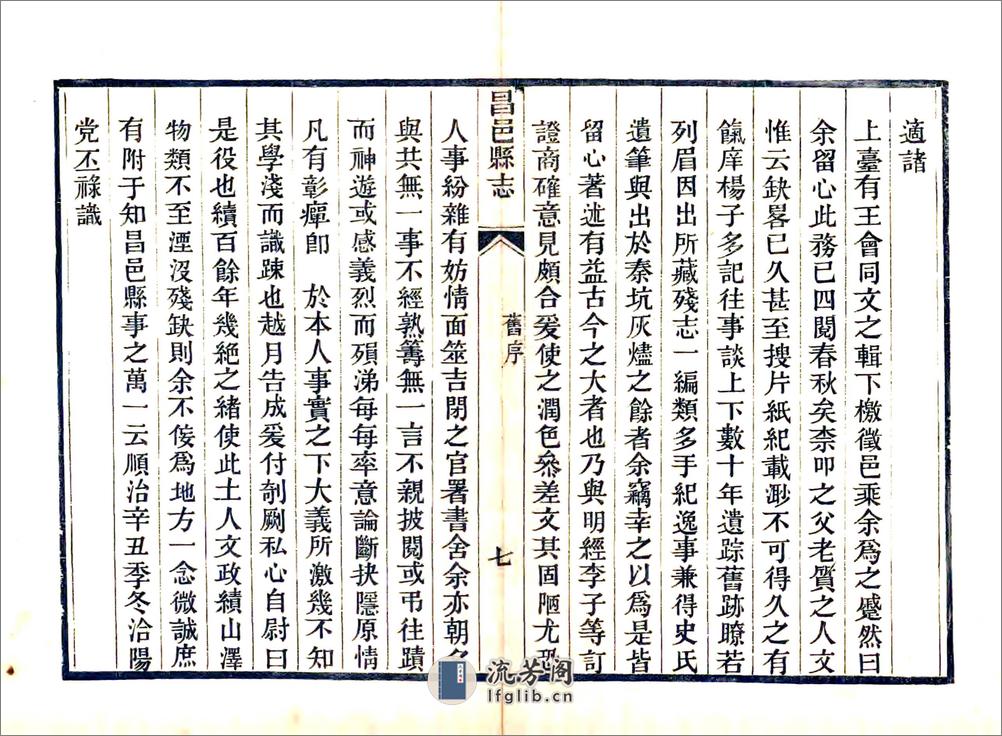 適諸
上臺有王會同文之輯下檄徵邑乘余爲之蹙然曰
余留心此務已四閱春秋矣柰叩之父老質之人文
惟云缺畧已久甚至搜片紙紀載渺不可得久之有
餼庠楊子多記往事談上下數十年遺踪舊跡瞭若
列眉因出所藏殘志一編類多手紀逸事兼得史氏
遺筆與出於秦坑灰燼之餘者余竊幸之以爲是皆
留心著述有益古今之大者也乃與明經李子等訂
證商確意見頗合爰使之潤色叅差文其固陋尤恐
昌邑縣志
舊序
七
人事紛雜有妨情面筮吉閉之官署書舍余亦朝夕
與共無一事不經熟籌無一言不親披閱或弔往蹟
而神遊或感義烈而殞涕每每率意論斷抉隱原情
凡有彰癉卽 於本人事實之下大義所激幾不知
其學淺而識踈也越月告成爰付剞劂私心自尉曰
是役也續百餘年幾絶之緒使此土人文政績山澤
物類不至湮沒殘缺則余不侫爲地方一念微誠庶
有附于知昌邑縣事之萬一云順治辛丑季冬洽陽
党丕祿識
流芳阁
lfglib.cn